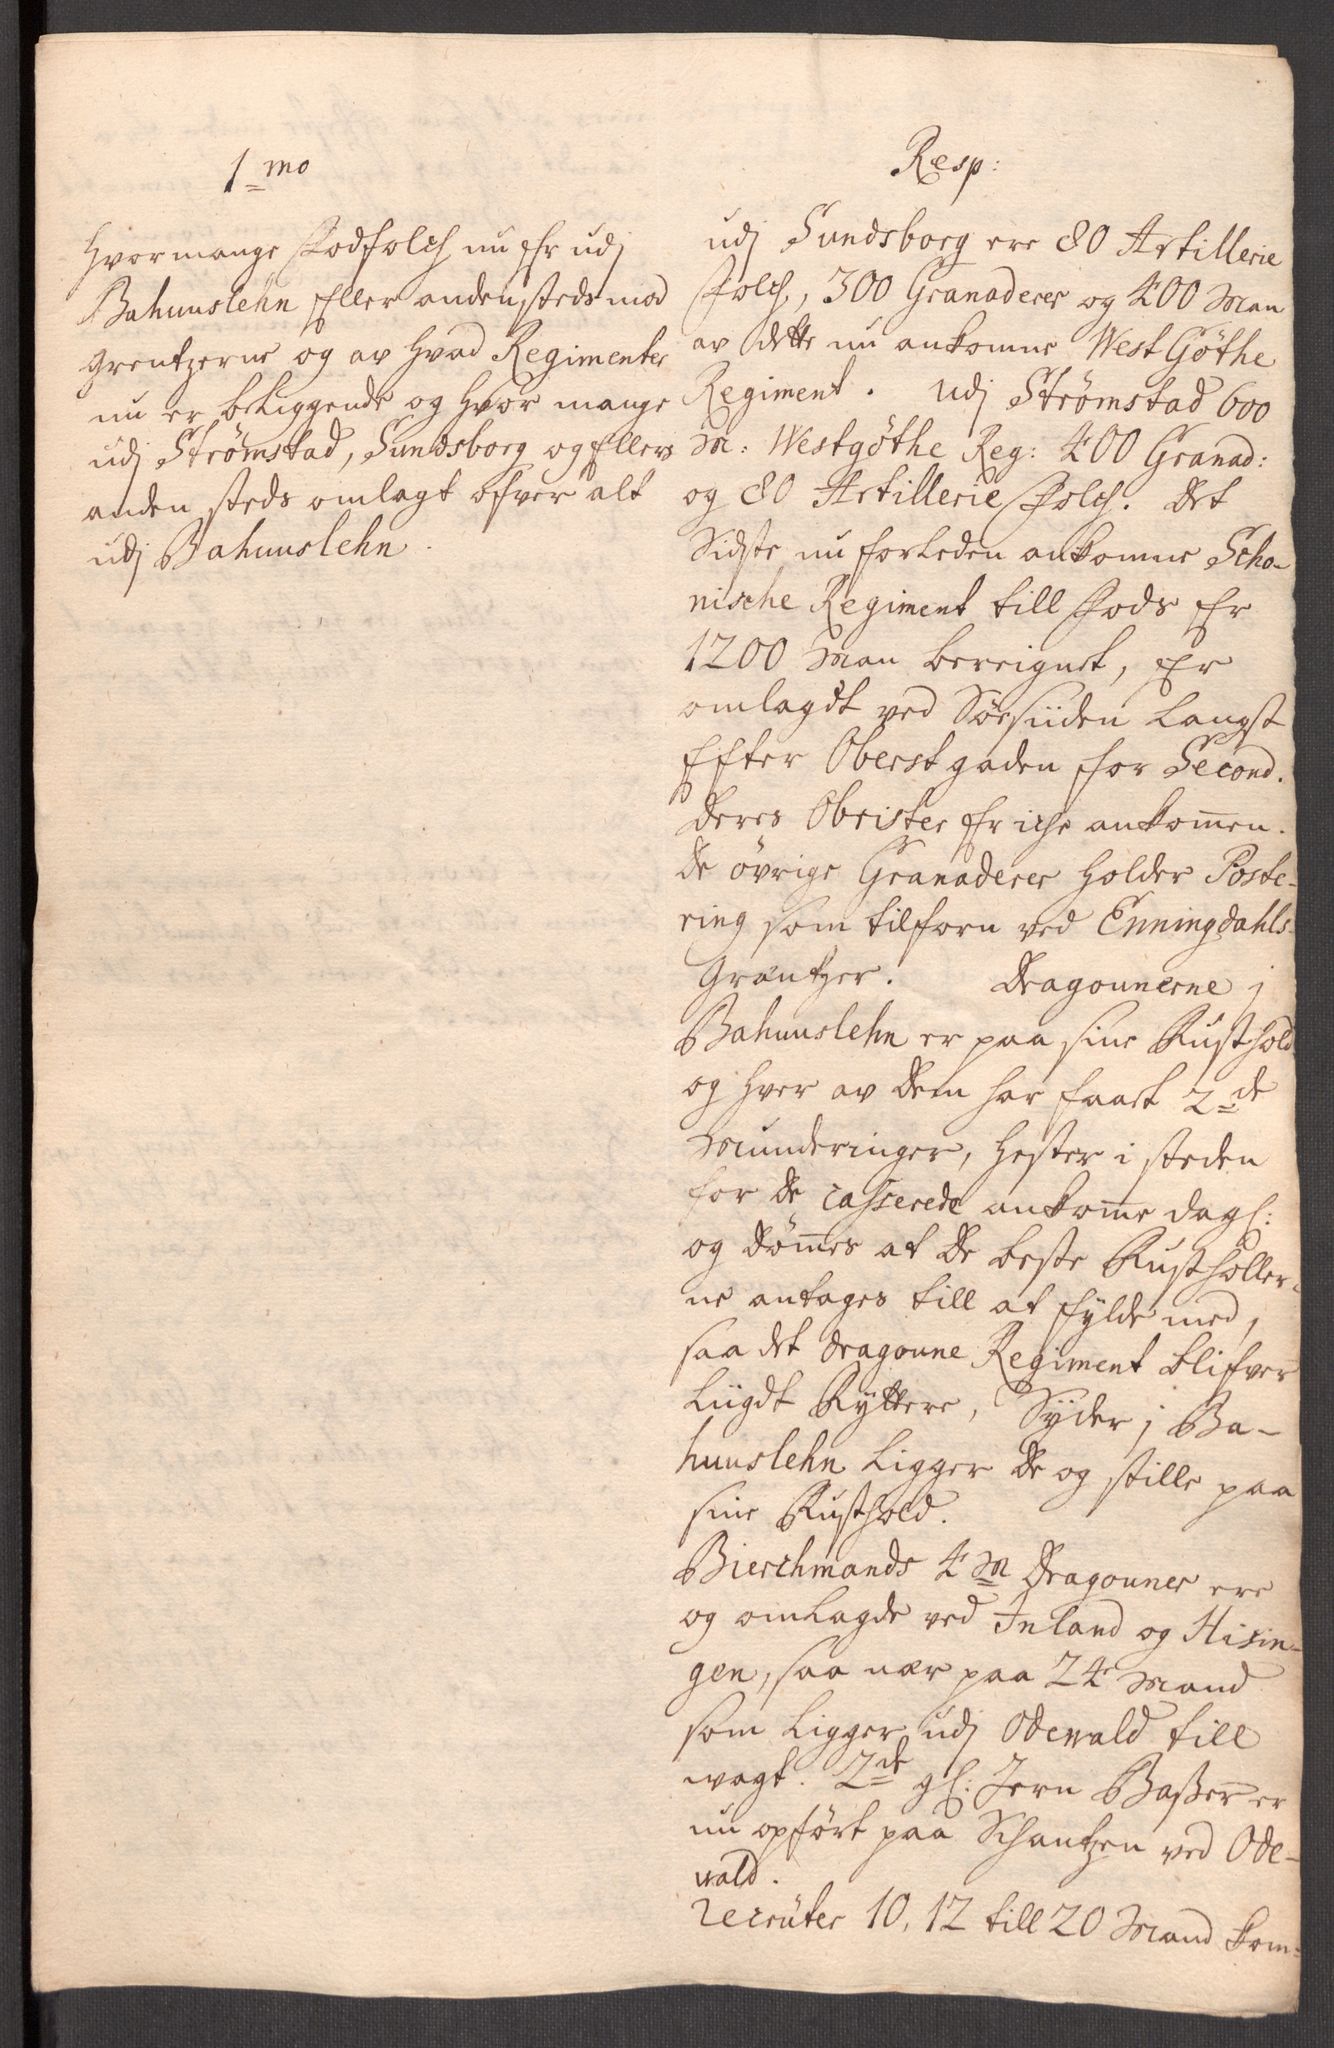 1mo
Hvor mange Fodfolch nu Er udj
Bahuuslehn Eller andensteds mod
Grentzerne og av Hvad Regimenter
nu er beliggende og Hvor mange
udj Strømstad, Sundsborg og Ellers
anden steds omlagt ofver alt
udj Bahuuslehn.
Resp:
udj Sundsborg ere 80 Artillerie
Folch, 300 Granaderer og 400 Man
av dette nu ankomne West Göthe
Regiment. Udj Strømstad 600
M: Westgöthe Reg: 400 Granad:
og 80 Artillerie Folch. Det
Sidste nu forleden ankomne Scho-
nische Regiment till Fods Er
1200 Man bereignet, Er
omlagdt ved Søesiiden Langst
Efter Oberstgaden for Second.
Deres Obrister Er iche ankommen.
De övrige Granaderer Holder Poste-
ring som tilforn ved Enningdahls-
Grantzer. Dragounerne j
Bahuuslehn er paa sine Rusthold
og Hver av dem har faaet 2de
Munderinger, Hester i steden
for de casserede ankomme dagl:
og dömmes at de beste Rustholler-
ne antages till at fylde med,
saa det dragoune Regiment blifver
Liigdt Ryttere, Syder j Ba-
huuslehn Ligger de og stille paa
sine Rusthold.
Bierchmands 4 M Dragouner ere
og omlagde ved Inland og Hisin-
gen, saa nær paa 24 Mand
som Ligger udj Odewald till
wagt. 2de gl: Jern Basser er
nu opfört paa Schantzen ved Ode-
wald.
recrüter 10, 12 till 20 Mand kom-